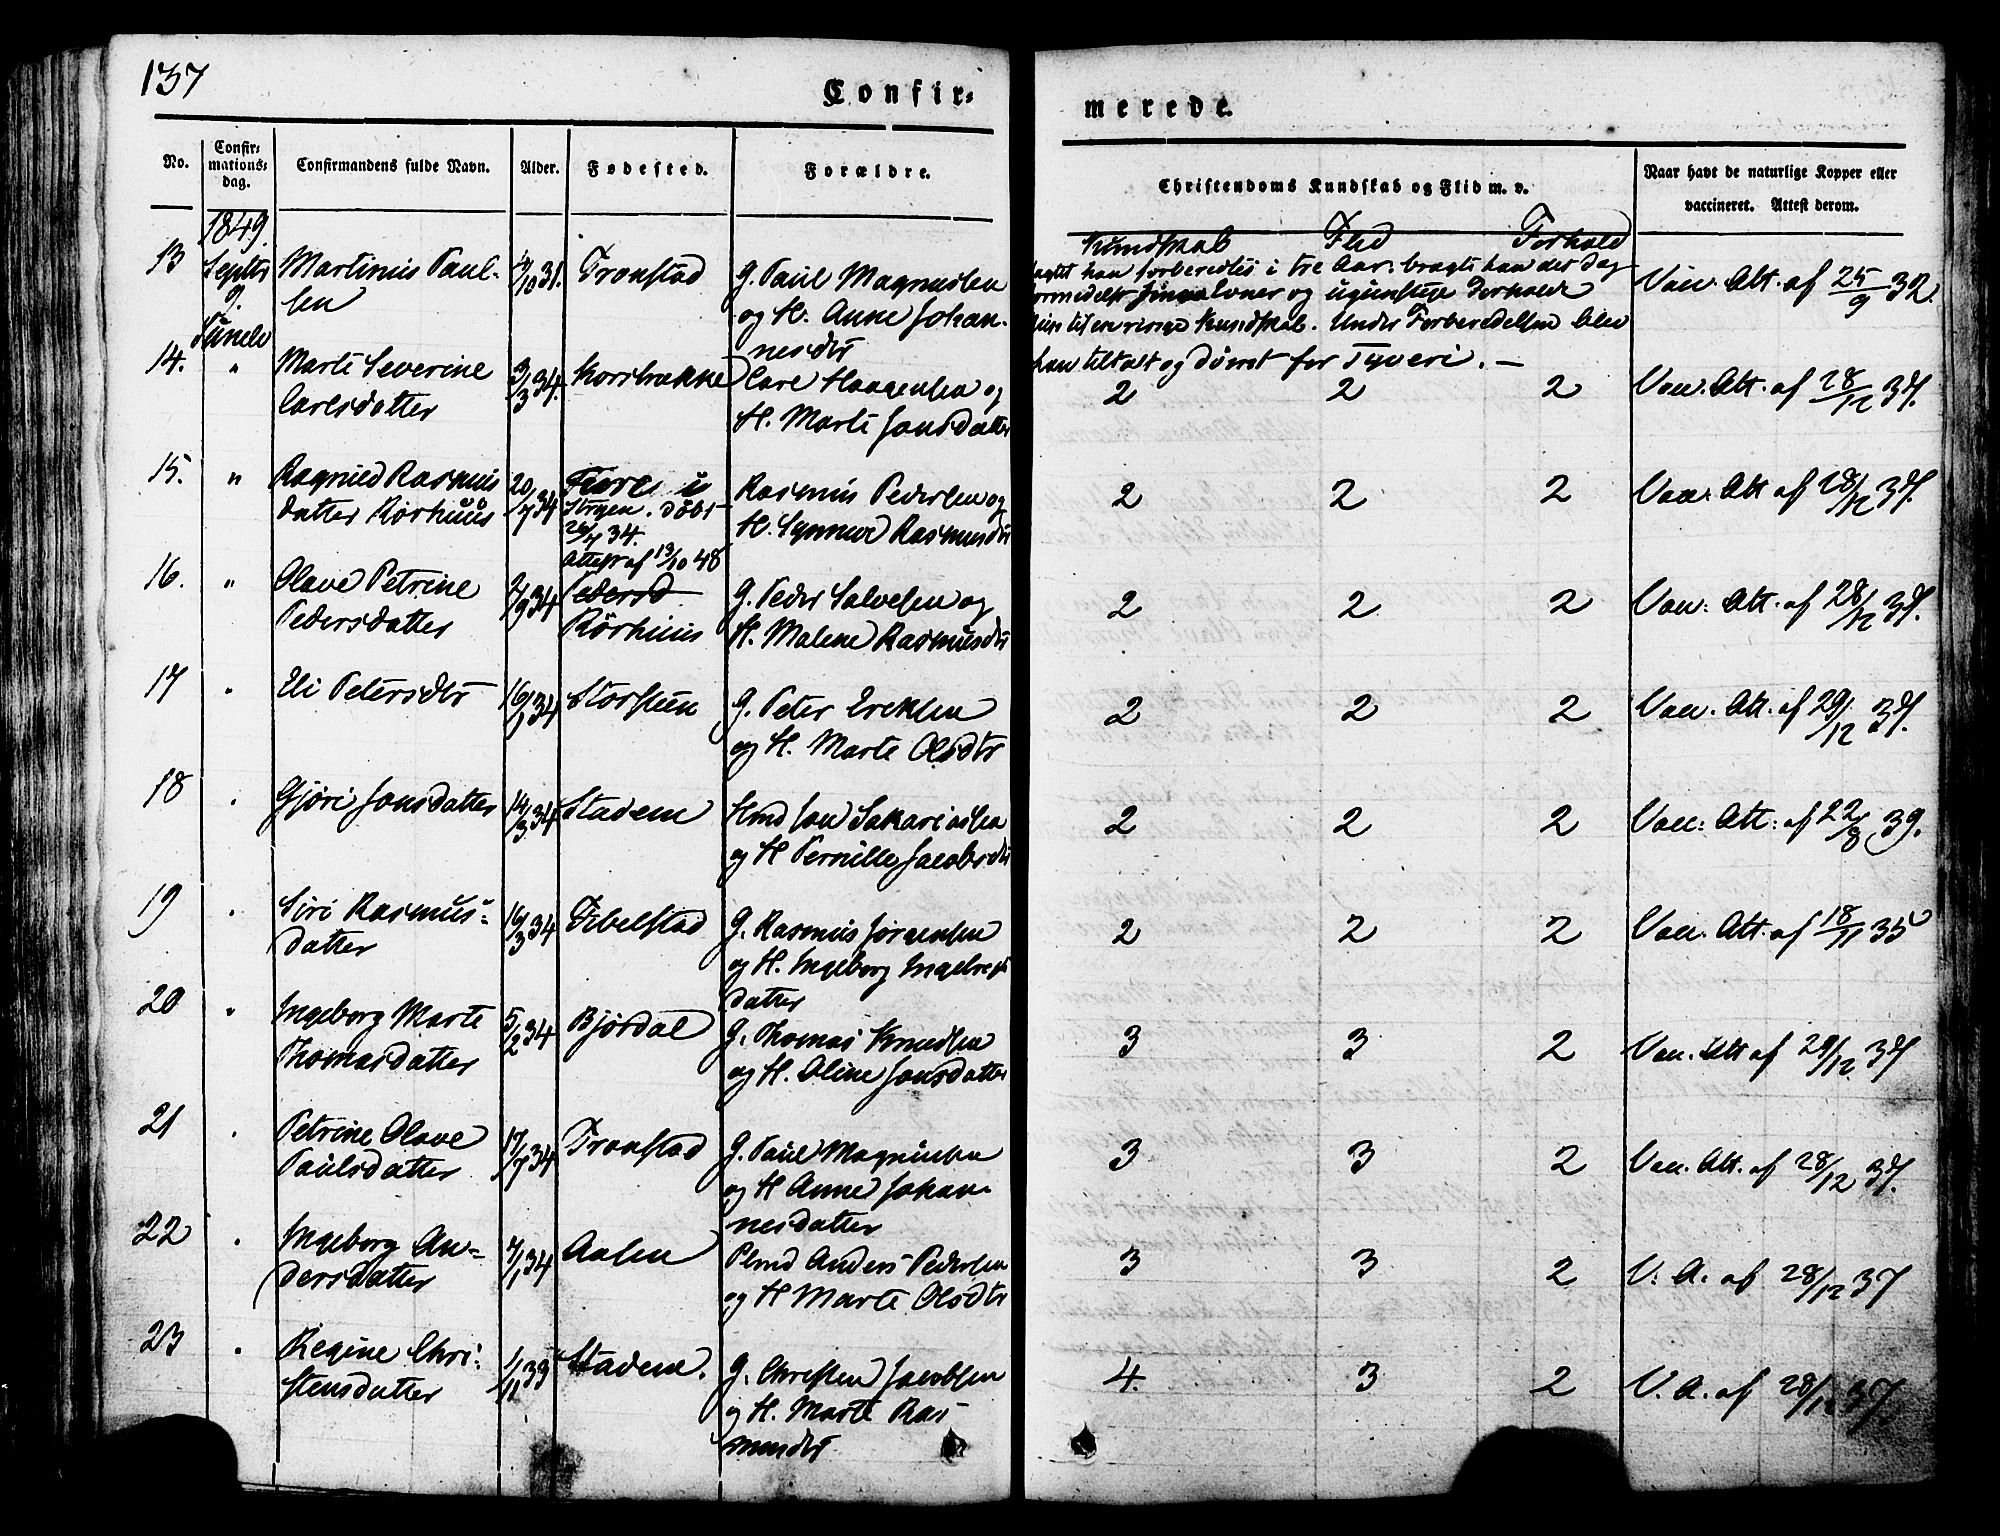 137
Confir-
merede.
No.
Confir-
mations-
dag.
Confirmandens fulde Navn.
Alder.
Fødested.
Forældre.
Christendoms Kundskab og Flid m. v.
Naar havt de naturlige Kopper eller
vaccineret. Attest derom.
1849.
Kundskab Flid Forhold
13 Septbr 9. Martinus Paul-
sen
/10 31. Tronstad
G. Paul Magnussen
og H. Anne Johan-
nesdtr
han forberedtes i tre Aar bragte han det dog
og ugunstige Forholde
til en ringe Kundskab. Under Forberedelsen blev
han tiltalt og dømt for Tyveri. —
Vacc. Att. af 25/9 32.
14. " Marte Severine
Carlsdatter
3/3 34. Korsbrække
Carl Haagensen og
H. Marte Jonsdatter
2 2 2 Vacc. Att. af 28/12 37.
15. " Ragnild Rasmus
datter Rørhuus
20/7 34
i
døbt
26/7 34.
Attest af 13/10 48
Rasmus Pedersen og
H. Synnur Rasmusdtr
2 2 2 Vacc. Att af 28/12 37.
16. " Olave Petrine
Pedersdatter
2/9 34
Rørhuus
G. Peder Salvesen og
H. Malene Rasmusdtr
2 2 2 Vacc. Att. af 28/12 37.
17 " Eli Petersdtr 16/1 34 Storsteen
G. Peter Ereksen
og H. Marte Olsdtr
2 2 2 Vacc. Att. af 29/12 37.
18 " Gjøri Jonsdatter 14/3 34 Stadem
Hmd Jon Sakariassen
og H Pernille Jacobsdtr
2 2 2 Vacc. Att. af 22/8 39.
19 " Siri Rasmus-
datter
16/3 34 Fibelstad
G. Rasmus Jørgensen
og H. Ingeborg Ingebregt
datter
2 2 2 Vacc. Att. af 18/11 35
20 " Ingeborg Marte
Thomasdatter
5/2 34 Bjørdal
G. Thomas Knudsen
og H. Oline Jonsdatter
3 3 2 Vacc. Att af 29/12 37
21 " Petrine Olave
Paulsdatter
17/7 34 Tronstad
G. Paul Magnussen
og H Anne Johan-
nesdatter
3 3 2 Vacc. Att. af 28/12 37.
22 " Ingeborg An-
dersdatter
/1 34 Aasen
Plmd Anders Pedersen
og H Marte Olsdtr
3 3 2 V. A. af 28/12 37
23 " Regine Chri-
stensdatter
1/11 39 Stadem.
G. Christen Jacobsen
og H. Marte Ras
musdtr
4. 3 2 V. A. af 28/12 37.